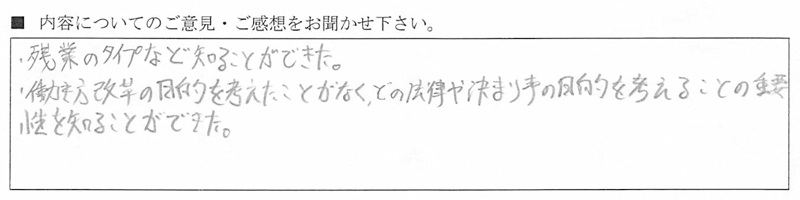 ■ 内容についてのご意見・ご感想をお聞かせ下さい。
・残業のタイプなど知ることができた。
・働き方改革の目的を考えたことがなく、どの法律や決まり事の目的を考えることの重要
性を知ることができた。